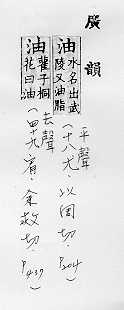 廣韻
油 水名出武
陵又油脂
平聲
(十八尤 以周切 P204)
油 子桐
花曰油
去聲
(四十九宥 余救切 P437)